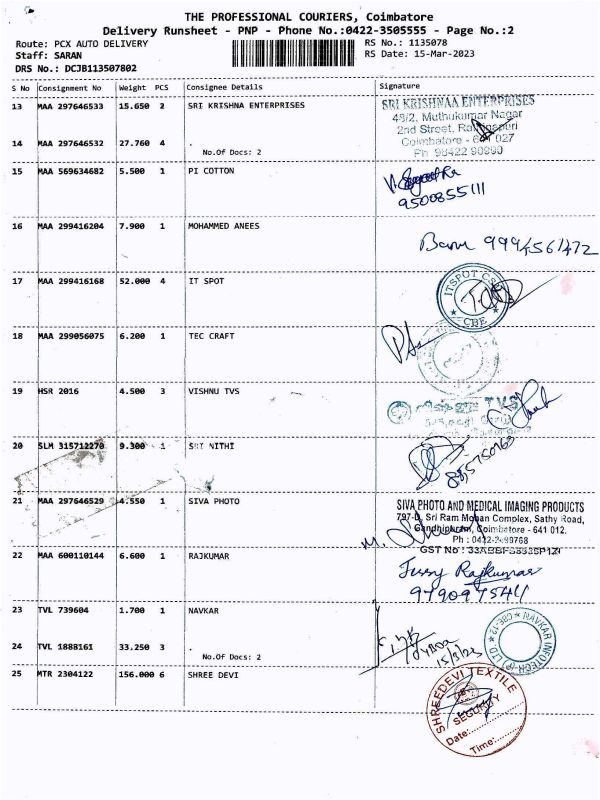 THE PROFESSIONAL COURIERS, Coimbatore
Delivery Runsheet - PNP - Phone No.:0422-3505555 - Page No.:2
Route: PCX AUTO DELIVERY
RS No.: 1135078
Staff: SARAN
RS Date: 15-Mar-2023
DRS No.: DCJB113507802
S No Consignment No Weight PCS Consignee Details Signature
13 MAA 297646533 15.650 2 SRI KRISHNA ENTERPRISES
SRI KRISHNAA ENTERPRISES
48/2, Muthukumar Nagar
2nd Street,
Coimbatore - 641 027
Ph 98422 90090
14 MAA 297646532 27.760 4 .
No.Of Docs: 2
15 MAA 569634682 5.500 1 PI COTTON
9500855111
16 MAA 299416204 7.900 1 MOHAMMED ANEES
Banu 9994561472
17 MAA 299416168 52.000 4 IT SPOT
ITSPOT
CBE
18 MAA 299056075 6.200 1 TEC CRAFT
19 HSR 2016 4.500 3 VISHNU TVS
TVS
20 SLM 315712270 9.300 1 SRI NITHI
21 MAA 297646529 4.550 1 SIVA PHOTO
SIVA PHOTO AND MEDICAL IMAGING PRODUCTS
797-D, Sri Ram Mohan Complex, Sathy Road,
Gandhipuram, Coimbatore - 641 012.
Ph : 0422-2499768
GST No :
22 MAA 600110144 6.600 1 RAJKUMAR
Rajkumar
23 TVL 739604 1.700 1 NAVKAR
NAVKAR INFOTECH (P) LTD CBE-12
24 TVL 1888161 33.250 3 .
No.Of Docs: 2
15/3/23
25 MTR 2304122 156.000 6 SHREE DEVI
SHREEDEVI TEXTILE
SECURITY
Date:
Time: